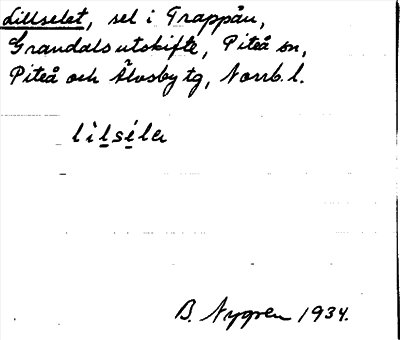 Lillselet, sel i Trappån,
Grandals utskifte, Piteå sn,
Piteå och Älvsby tg, Norrb. l.
lìlsíla
B. Nygren 1934.